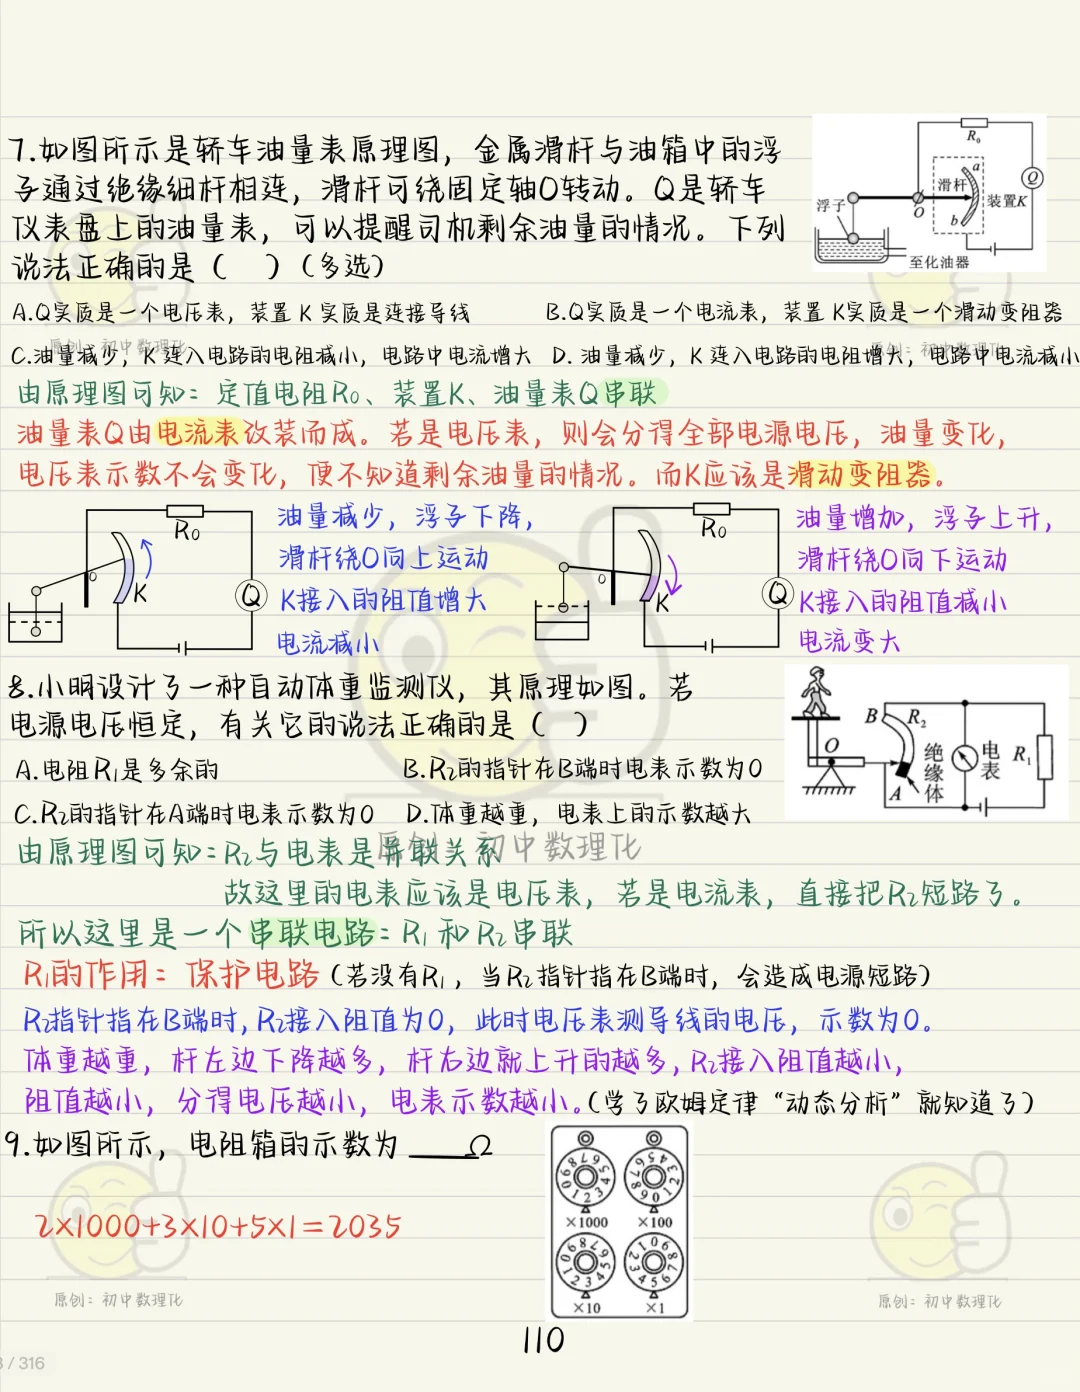 7.如图所示是轿车油量表原理图，金属滑杆与油箱中的浮
子通过绝缘细杆相连，滑杆可绕固定轴O转动。Q是轿车
仪表盘上的油量表，可以提醒司机剩余油量的情况。下列
说法正确的是（ ）（多选）
R₀
Q
a
滑杆
装置K
浮子
O
b
至化油器
A.Q实质是一个电压表，装置K实质是连接导线
B.Q实质是一个电流表，装置K实质是一个滑动变阻器
C.油量减少，K连入电路的电阻减小，电路中电流增大
D.油量减少，K连入电路的电阻增大，电路中电流减小
原创：初中数理化
原创：初中数理化
由原理图可知：定值电阻R₀、装置K、油量表Q串联
油量表Q由电流表改装而成。若是电压表，则会分得全部电源电压，油量变化，
电压表示数不会变化，便不知道剩余油量的情况。而K应该是滑动变阻器。
R₀
O
K
Q
油量减少，浮子下降，
滑杆绕O向上运动
K接入的阻值增大
电流减小
R₀
O
K
Q
油量增加，浮子上升，
滑杆绕O向下运动
K接入的阻值减小
电流变大
8.小明设计了一种自动体重监测仪，其原理如图。若
电源电压恒定，有关它的说法正确的是（ ）
B
R₂
O
绝缘体
电表
R₁
A
A.电阻R₁是多余的
B.R₂的指针在B端时电表示数为0
C.R₂的指针在A端时电表示数为0
D.体重越重，电表上的示数越大
原创：初中数理化
由原理图可知：R₂与电表是并联关系
故这里的电表应该是电压表，若是电流表，直接把R₂短路了。
所以这里是一个串联电路：R₁和R₂串联
R₁的作用：保护电路（若没有R₁，当R₂指针指在B端时，会造成电源短路）
R₂指针指在B端时，R₂接入阻值为0，此时电压表测导线的电压，示数为0。
体重越重，杆左边下降越多，杆右边就上升的越多，R₂接入阻值越小，
阻值越小，分得电压越小，电表示数越小。（学了欧姆定律“动态分析”就知道了）
9.如图所示，电阻箱的示数为____Ω
×1000
×100
×10
×1
2×1000+3×10+5×1=2035
原创：初中数理化
原创：初中数理化
110
/ 316